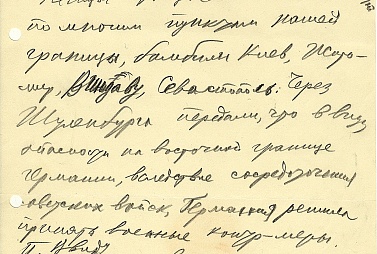 по многим пунктам нашей
границы, бомбили Киев, Жито-
мир, Виндаву, Севастополь. Через
Шуленбурга передали, что в виду
опасности на восточной границе
Германии, вследствие сосредоточения
советских войск, Германия решила
принять военные контр-меры.